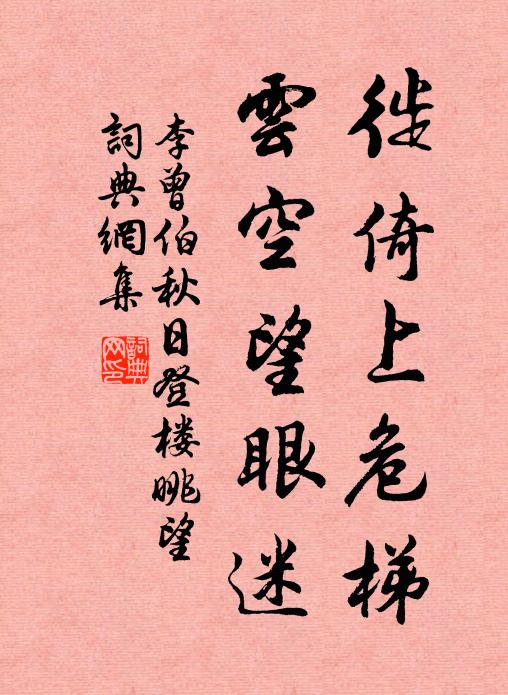 徙倚上危梯
雲空望眼迷
李曾伯秋日登楼眺望
詞典網集
詞典网印